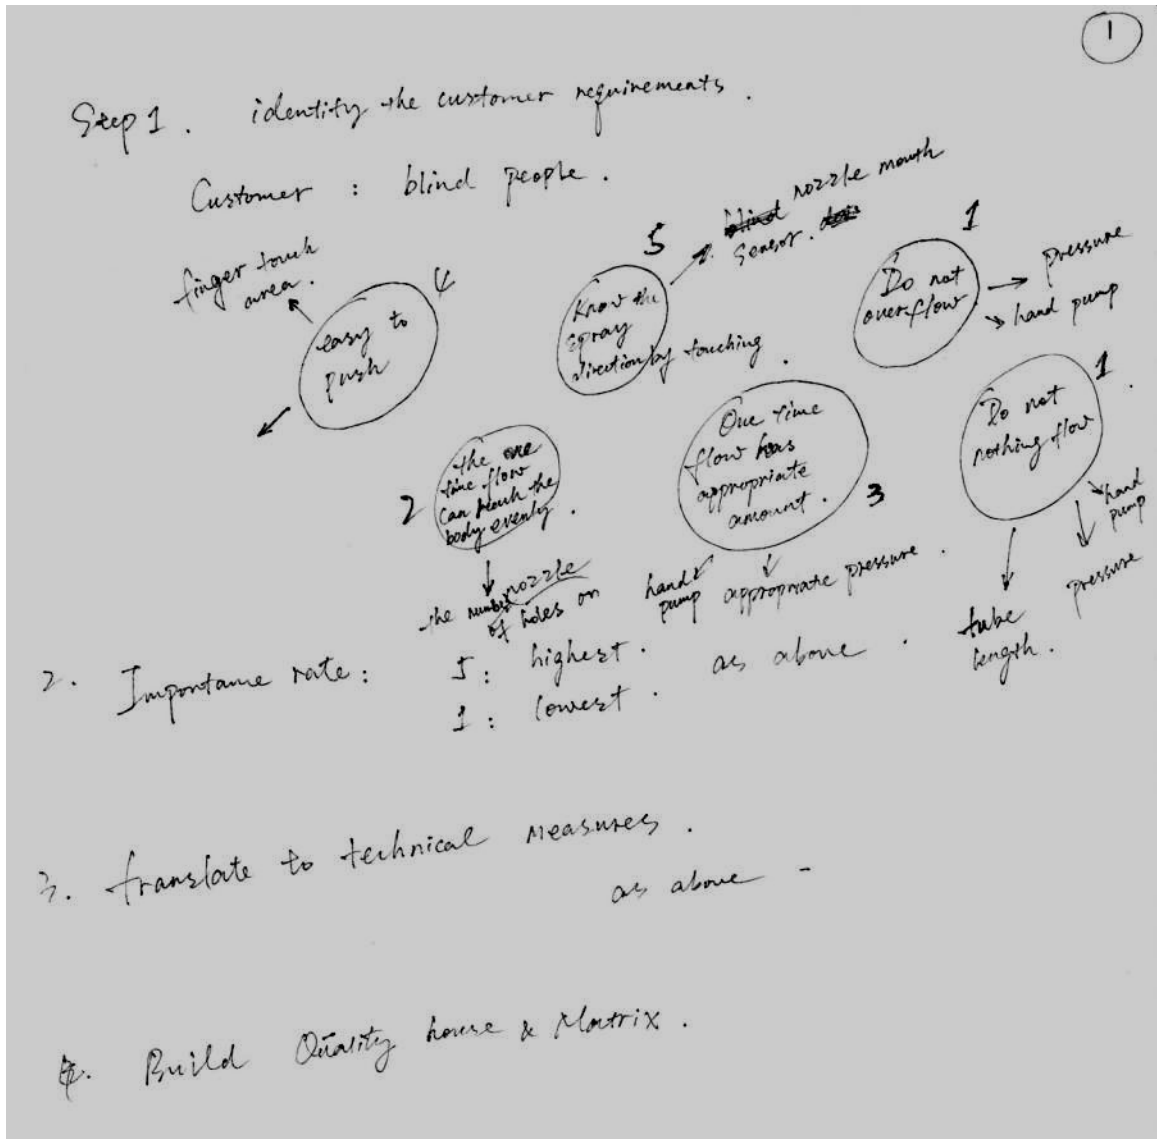 1
Step 1. identify the customer requirements.
Customer : blind people.
finger touch
area.
4
easy to
push
5
nozzle mouth
sensor.
Know the
spray
direction by touching
1
Do not
overflow.
pressure
hand pump
2
the one
time flow
can reach the
body evenly.
the number
of holes on
nozzle
One time
flow has
appropriate
amount.
3
hand
pump
appropriate pressure.
1.
Do not
nothing flow
hand
pump
pressure
tube
length.
2. Importance rate: 5: highest. as above.
1: lowest.
3. translate to technical measures.
as above -
4. Build Quality house & Matrix.